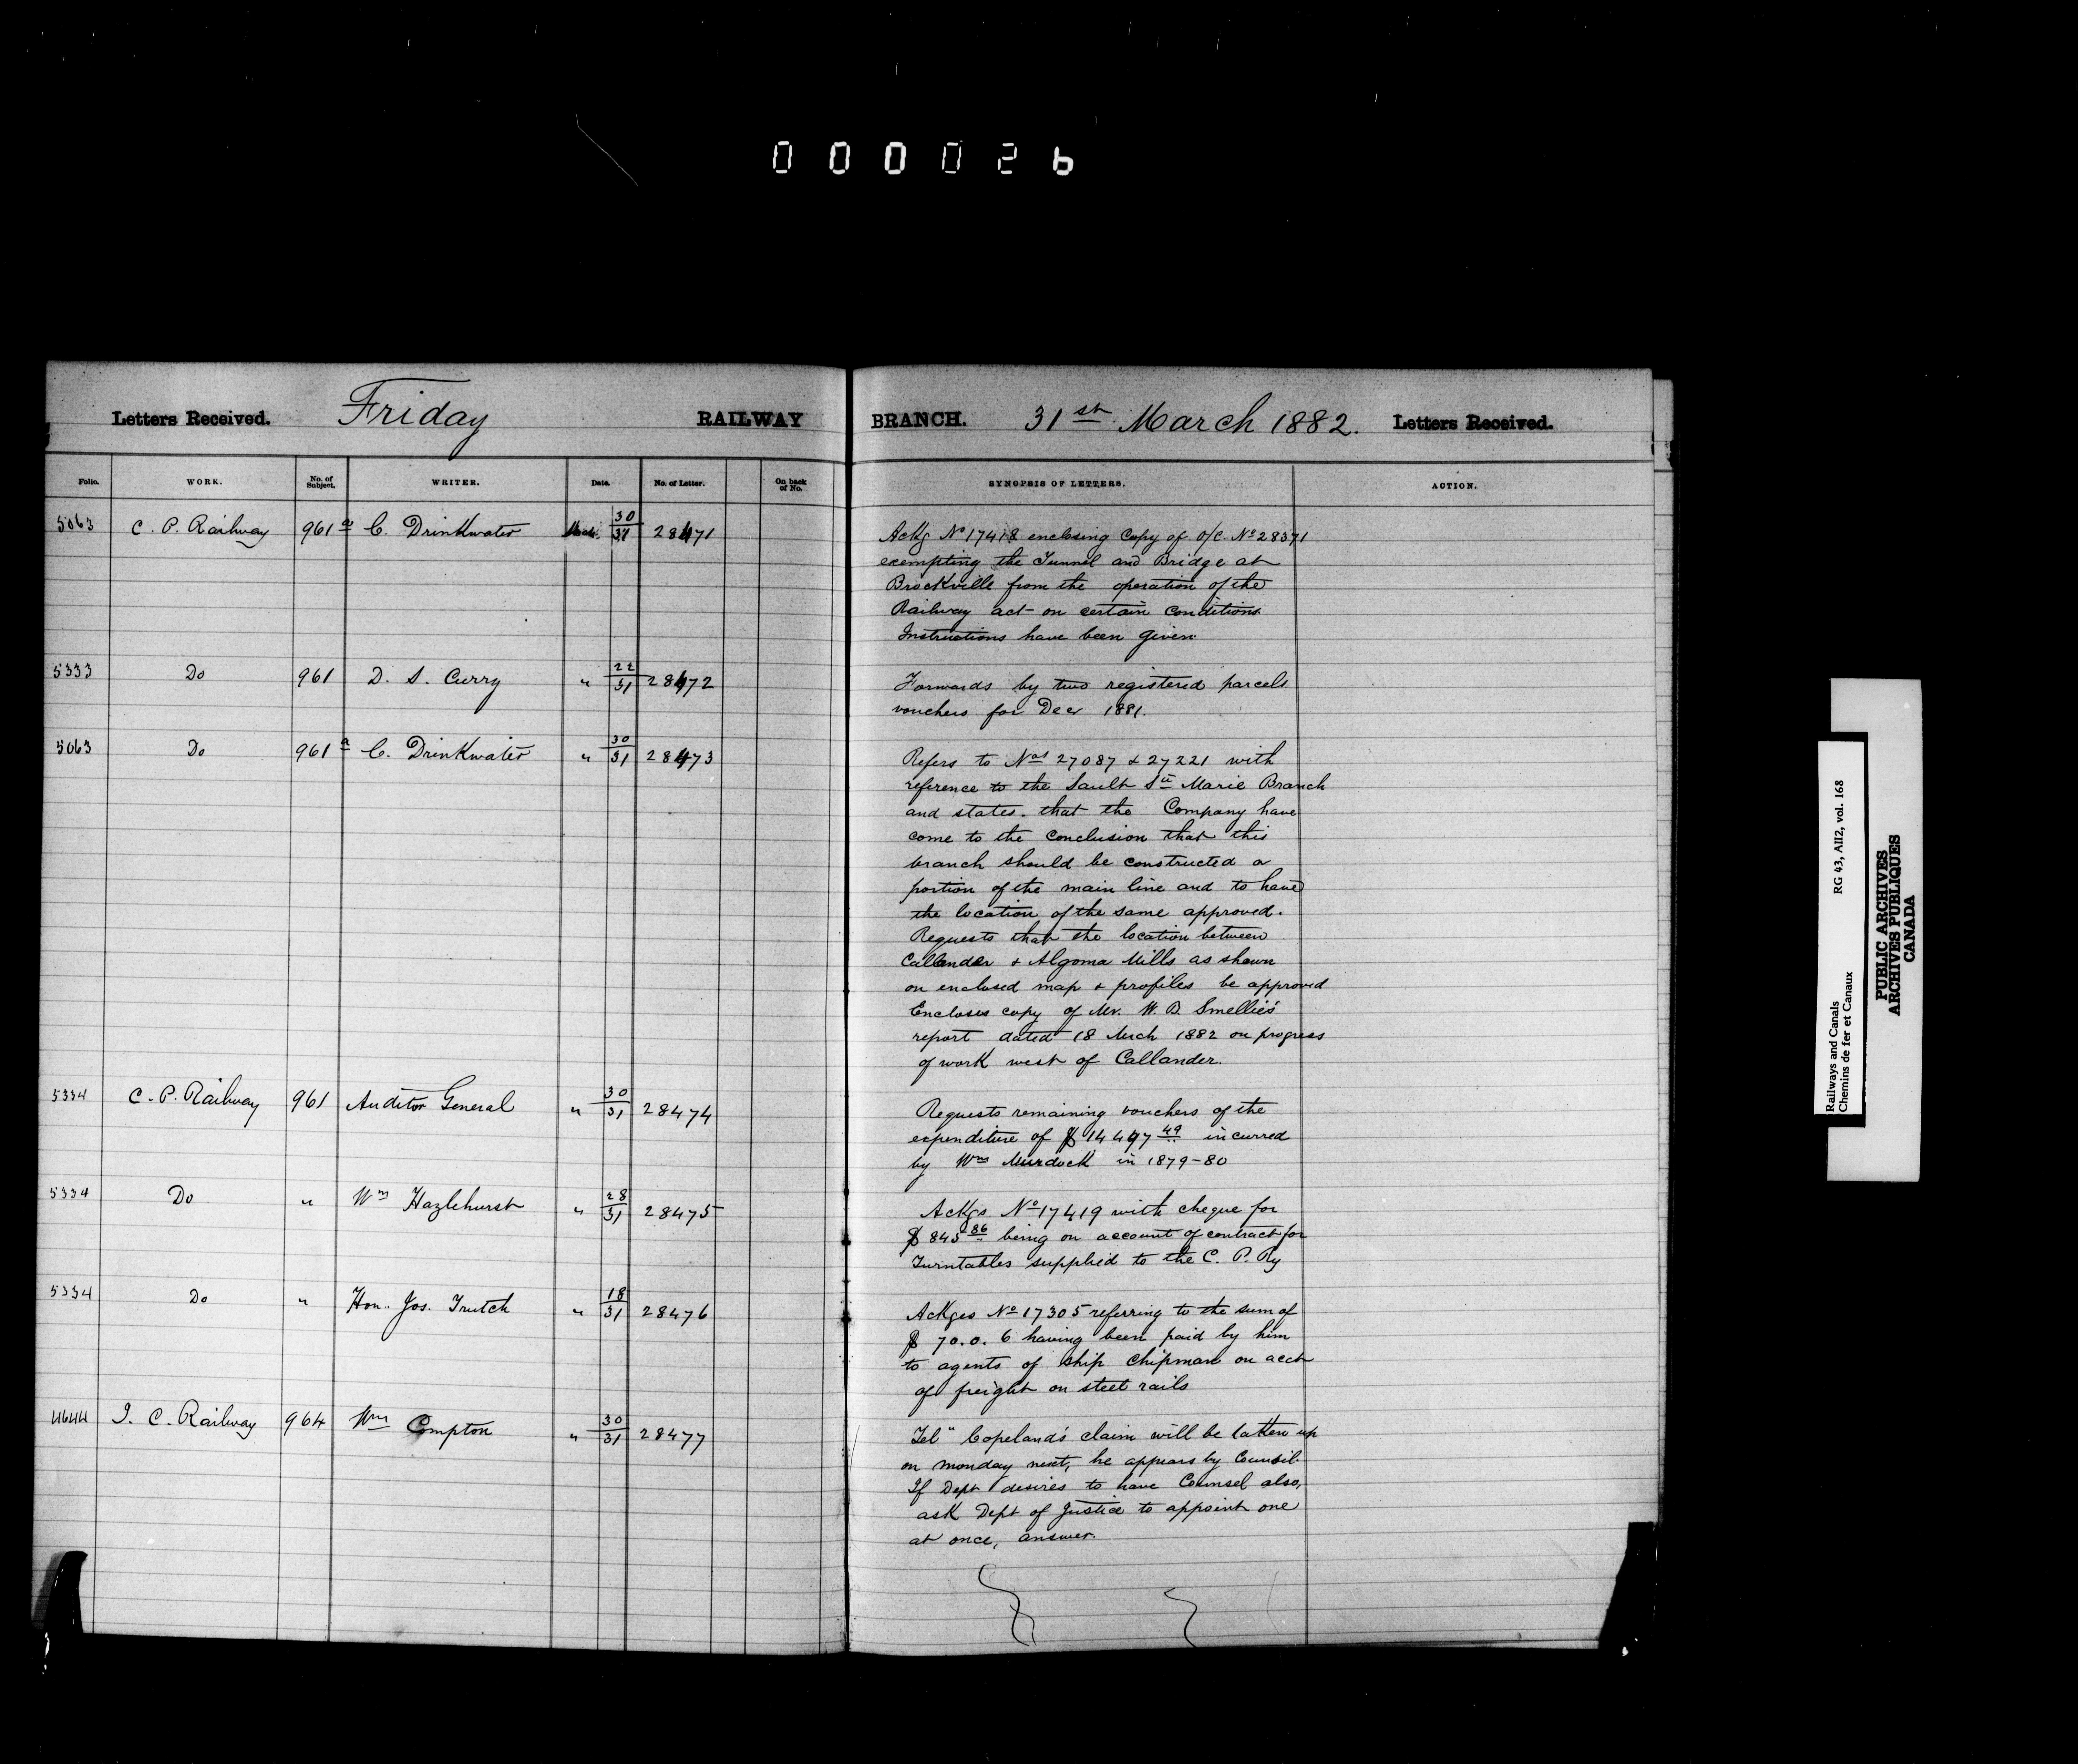 000026
Letters Received. Friday RAILWAY BRANCH. 31st March 1882. Letters Received.
Folio. WORK. No. of Subject. WRITER. Date. No. of Letter. On back of No. SYNOPSIS OF LETTERS. ACTION.
5063 C. P. Railway 961a C. Drinkwater Mch. 30/31 28471
Ackg No 17418 enclosing Copy of O/C. No 28371
exempting the Tunnel and Bridge at
Brockville from the operation of the
Railway act on certain conditions
Instructions have been given
5333 Do 961 D. S. Curry " 22/31 28472
Forwards by two registered parcels
vouchers for Decr 1881.
5063 Do 961a C. Drinkwater " 30/31 28473
Refers to Nos 27087 & 27221 with
reference to the Sault Ste Marie Branch
and states that the Company have
come to the conclusion that this
branch should be constructed a
portion of the main line and to have
the location of the same approved.
Requests that the location between
Callander & Algoma Mills as shown
on enclosed map & profiles be approved
Encloses copy of Mr. W. B. Smellie's
report dated 18 Mrch 1882 on progress
of work west of Callander.
5334 C. P. Railway 961 Auditor General " 30/31 28474
Requests remaining vouchers of the
expenditure of $14497 49 incurred
by Wm Murdock in 1879-80
5334 Do " Wm Hazlehurst " 28/31 28475
Ackgs No 17419 with cheque for
$ 843 86 being on account of contract for
Turntables supplied to the C. P. Ry
5334 Do " Hon. Jos. Trutch " 18/31 28476
Ackges No 17305 referring to the sum of
$ 70.0.6 having been paid by him
to agents of ship Chipman on acct
of freight on steel rails
4644 I. C. Railway 964 Wm Compton " 30/31 28477
Tel" Copeland's claim will be taken up
on monday next, he appears by Counsil.
If Dept desires to have Counsel also,
ask Dept of Justice to appoint one
at once, answer.
Railways and Canals RG 43, AII2, vol. 168
Chemins de fer et Canaux
PUBLIC ARCHIVES
ARCHIVES PUBLIQUES
CANADA